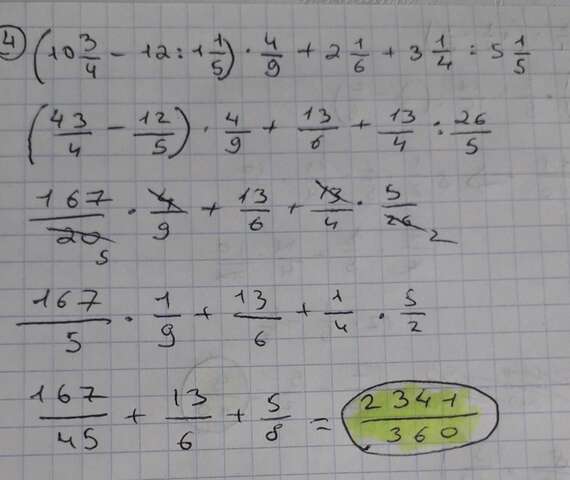 4) (10 3/4 - 12 : 1 1/5) · 4/9 + 2 1/6 + 3 1/4 : 5 1/5
(43/4 - 12/5) · 4/9 + 13/6 + 13/4 : 26/5
167/20 5 · 4/9 + 13/6 + 13/4 · 5/26 2
167/5 · 1/9 + 13/6 + 1/4 · 5/2
167/45 + 13/6 + 5/8 = 2341/360